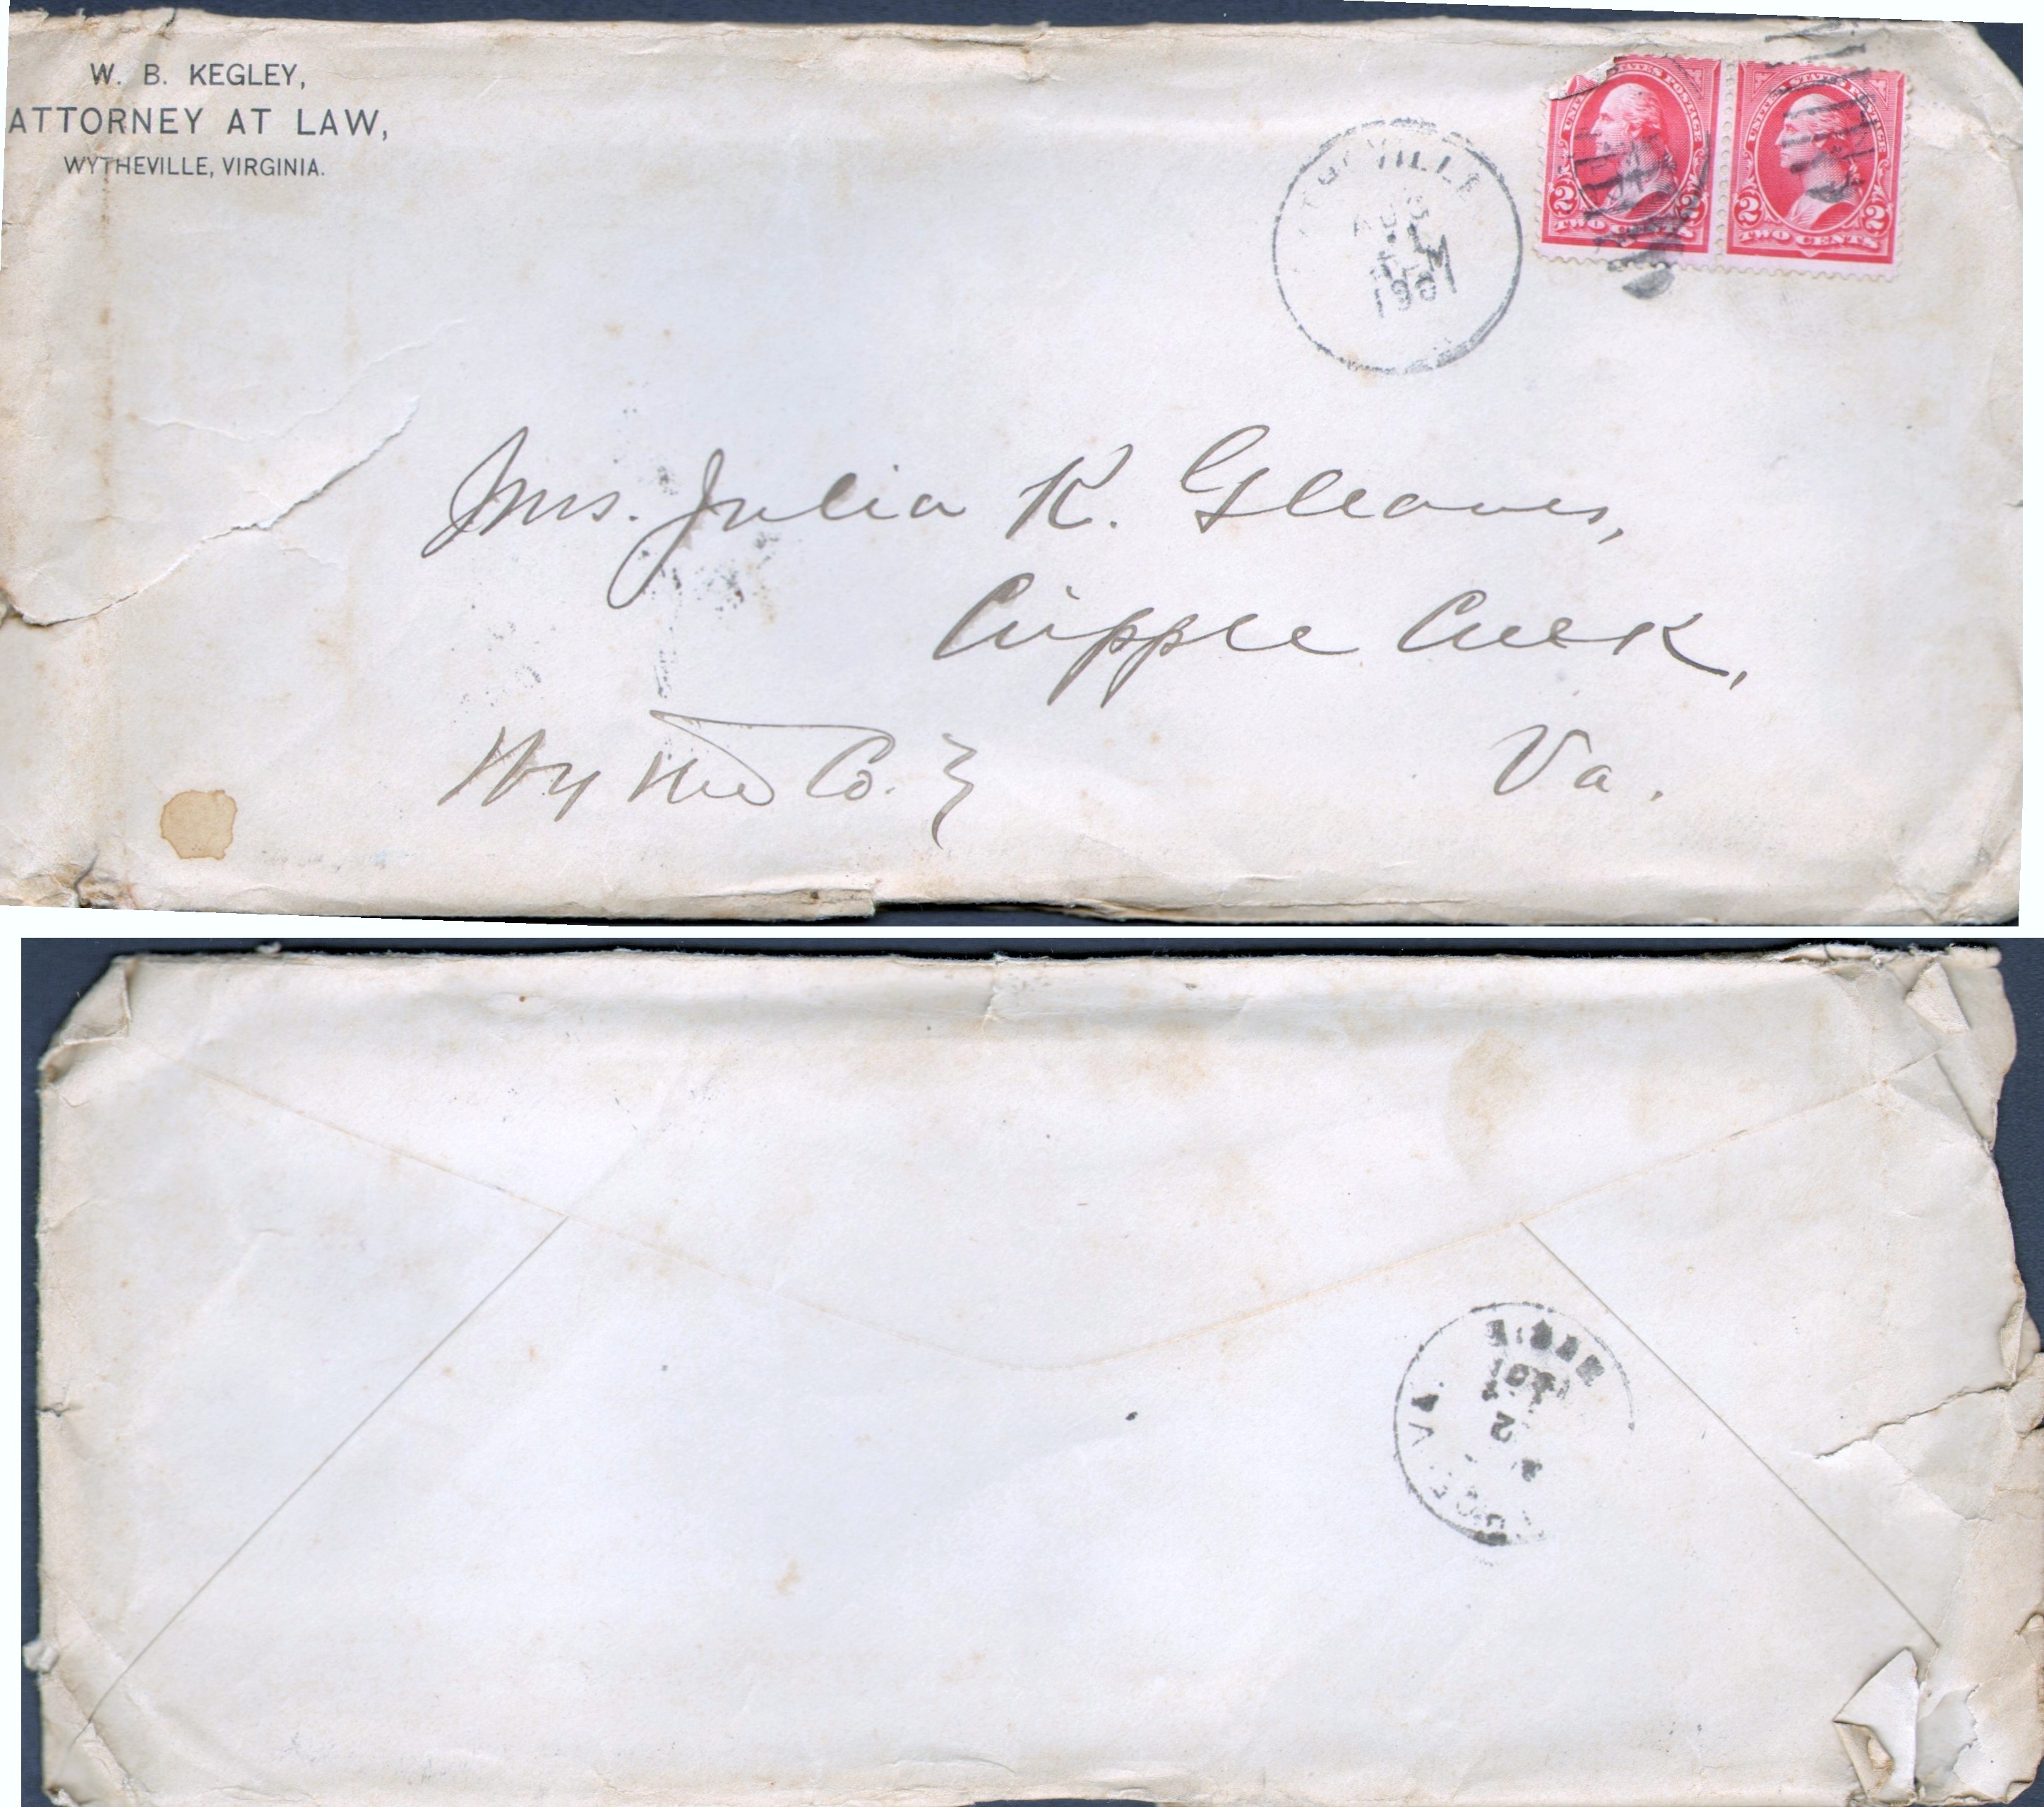 W. B. KEGLEY,
ATTORNEY AT LAW,
WYTHEVILLE, VIRGINIA.
UNITED STATES POSTAGE
2 2
TWO CENTS
UNITED STATES POSTAGE
2 2
TWO CENTS
Mrs. Julia K. Gleaves,
Cripple Creek,
Wythe Co. Va.
VA